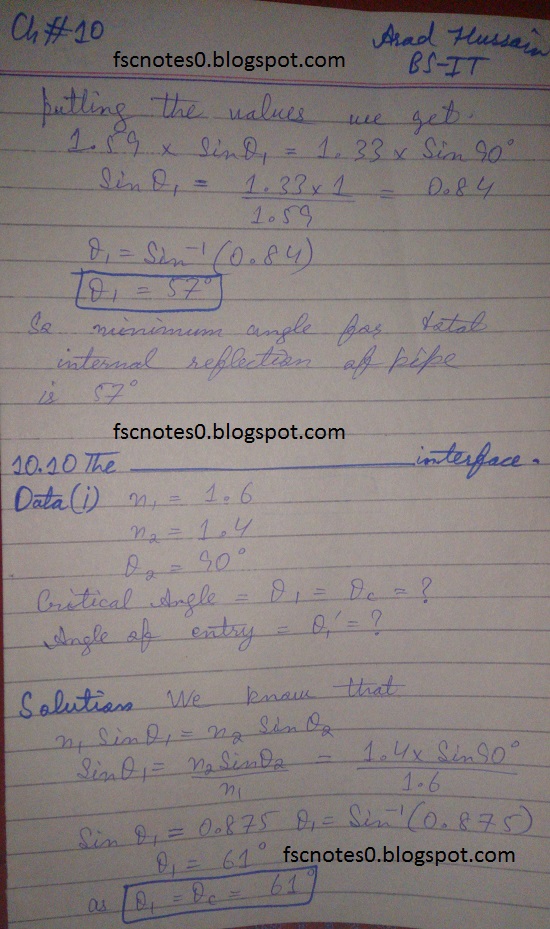 Ch#10
Asad Hussain
BS-IT
fscnotes0.blogspot.com
putting the values we get.
1.59 × Sinθ₁ = 1.33 × Sin 90°
Sin θ₁ = 1.33×1 / 1.59 = 0.84
θ₁ = Sin⁻¹(0.84)
θ₁ = 57°
So minimum angle for total
internal reflection of pipe
is 57°
fscnotes0.blogspot.com
10.10 The ____________ interface.
Data(i) n₁ = 1.6
n₂ = 1.4
θ₂ = 90°
Critical Angle = θ₁ = θc = ?
Angle of entry = θ₁' = ?
Solution We know that
n₁ Sinθ₁ = n₂ Sinθ₂
Sinθ₁ = n₂Sinθ₂ / n₁ = 1.4× Sin90° / 1.6
Sin θ₁ = 0.875 θ₁ = Sin⁻¹(0.875)
θ₁ = 61°
fscnotes0.blogspot.com
as θ₁ = θc = 61°